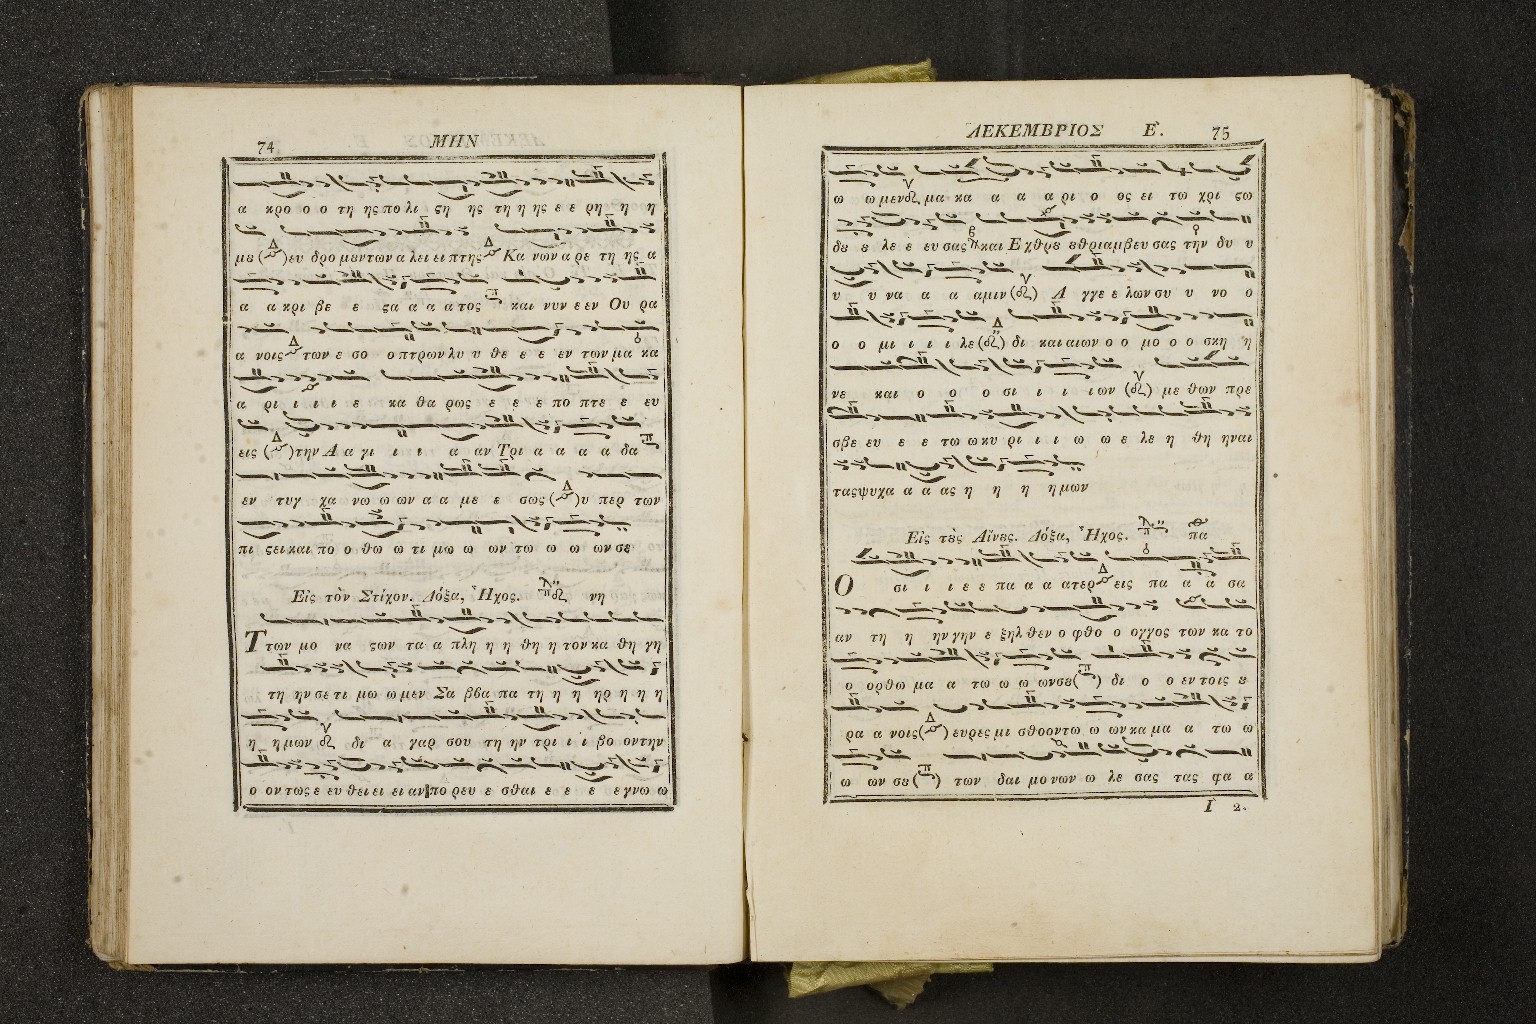 74 ΜΗΝ
α κρο ο ο τη ης πο λι ςη ης τη η ης ε ε ρη η η
μȣ ( Δ ) ευ δρο μȣντων α λει ει πτης Δ Κα νων α ρε τη ης α
α α κρι βε ε ςα α α α τος π και νυν ε εν Ου ρα
α νοις Δ των ε σο ο πτρων λυ υ θε ε ε εν των μα κα
α ρι ι ι ι ε κα θα ρως ε ε ε πο πτε ε ευ
εις ( Δ ) την Α α γι ι ι α αν Τρι α α α α δα π
εν τυγ χα νω ω ων α α με ε σως ( Δ ) υ περ των
πι ςει και πο ο θω ω τι μω ω ων τω ω ω ων σε
Εἰς τὸν Στίχον. Δόξα, Ἦχος. λ π νη
Των μο να ςων τα α πλη η η θη η τον κα θη γη
τη ην σε τι μω ω μεν Σα ββα πα τη η η ηρ η η η
η η μων ν δι α γαρ σου τη ην τρι ι ι βο ον την
ο ον τως ε ευ θει ει ει αν πο ρευ ε σθαι ε ε ε εγνω ω
ΔΕΚΕΜΒΡΙΟΣ Ε. 75
ω ω μεν ν μα κα α α α ρι ο ος ει τω χρι ςω
δȣ ȣ λε ε ευ σας β και Ε χθρȣ ȣθριαμβευ σας την δυ υ
υ υ να α α αμιν ( ν ) Α γγε ε λων συ υ νο ο
ο ο μι ι ι ι λε ( Δ ) δι και αιων ο ο μο ο ο σκη η
νε και ο ο ο σι ι ι ι ων ( ν ) με θων πρε
σβε ευ ε ε τω ω κυ ρι ι ι ω ω ε λε η θη ηναι
τας ψυχα α α ας η η η ημων
Εἰς τȣ̀ς Αἴνȣς. Δόξα, Ἦχος. λ π πα
Ο σι ι ι ε ε πα α α ατερ Δ εις πα α α σα
αν τη η ην γην ε ξηλ θεν ο φθο ο ογγος των κα το
ο ορθω μα α τω ω ω ωνσȣ ( π ) δι ο ο εν τοις ȣ
ρα α νοις ( Δ ) ευρες μι σθοοντω ω ων κα μα α τω ω
ω ων σȣ ( π ) των δαι μο νων ω λε σας τας φα α
I 2.